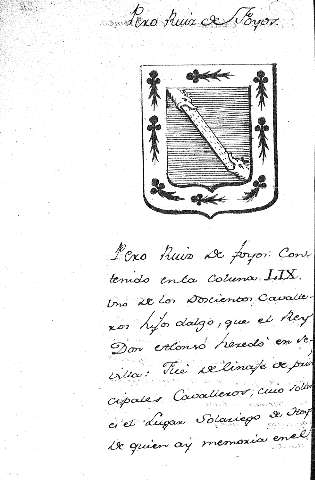 Pero Ruiz de Hoyos.
Pero Ruiz de hoyos: Con
tenido en la coluna LIX.
Uno de los Doscientos Cavalle
ros hijos dalgo, que el Rey
Don Alonso heredó en Se
villa: Fue de linaje de prin
cipales Cavalleros, cuio
es el Lugar Solariego de
de quien ay memoria en el